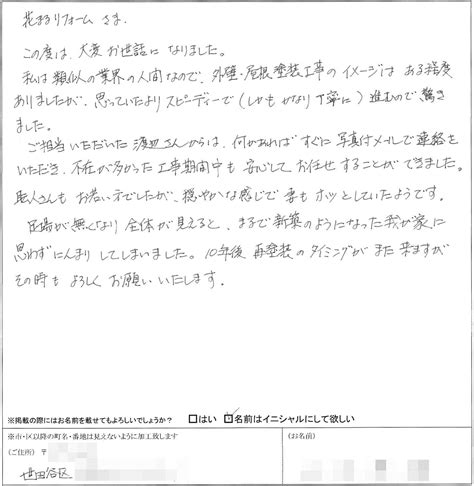 花まるリフォーム さま.
この度は、大変お世話になりました。
私は類似の業界の人間なので、外壁・屋根塗装工事のイメージは ある程度
ありましたが、思っていたよりスピーディーで(しかもかなり丁寧に)進むので驚き
ました。
ご担当いただいた渡辺さんからは、何かあればすぐに写真付メールで連絡を
いただき、不在が多かった工事期間中も安心してお任せすることができました。
職人さんもお若い方でしたが、穏やかな感じで妻もホッとしていたようです。
足場が無くなり全体が見えると、まるで新築のようになった我が家に
思わずにんまりしてしまいました。10年後 再塗装のタイミングがまた来ますが
その時もよろしくお願いいたします。
※掲載の際にはお名前を載せてもよろしいでしょうか? □はい ☑名前はイニシャルにして欲しい
※市・区以降の町名・番地は見えないように加工致します
(ご住所) 〒
(お名前)
世田谷区